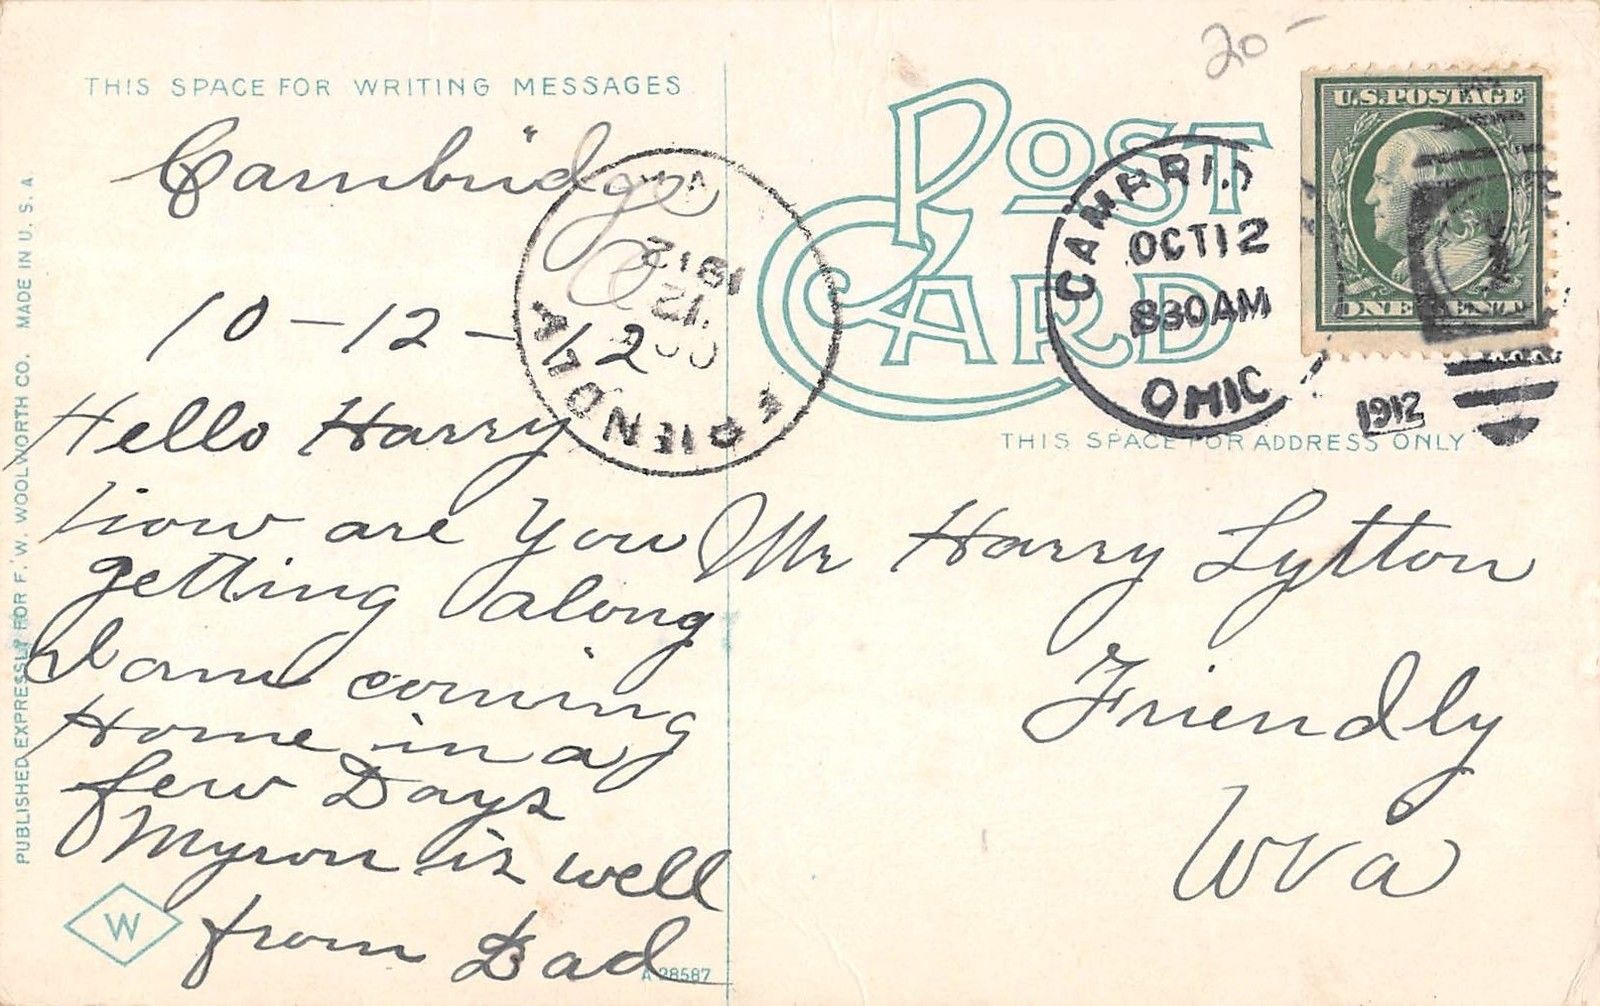 20-
THIS SPACE FOR WRITING MESSAGES
POST CARD
U.S.POSTAGE
ONE CENT
CAMBRID
OCT 12
830AM
OHIO
1912
THIS SPACE FOR ADDRESS ONLY
FRIENDLY
W.VA.
OCT
12
1912
Cambridge O
10-12-12
Hello Harry
how are you
getting along
I am coming
Home in a
few Days
Myron is well
from Dad
Mr Harry Lytton
Friendly
Wva
PUBLISHED EXPRESSLY FOR F. W. WOOLWORTH CO. MADE IN U. S. A
W
A 28587